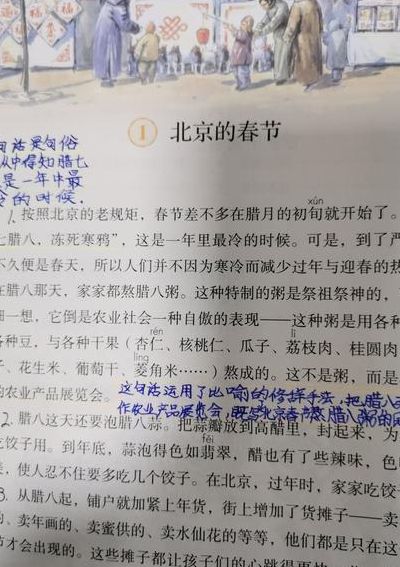 福
1 北京的春节
句话是句俗
从中得知腊七
是一年中最
冷的时候.
xún
1. 按照北京的老规矩，春节差不多在腊月的初旬就开始了。
七腊八，冻死寒鸦”，这是一年里最冷的时候。可是，到了严
不久便是春天，所以人们并不因为寒冷而减少过年与迎春的热
在腊八那天，家家都熬腊八粥。这种特制的粥是祭祖祭神的，
细一想，它倒是农业社会一种自傲的表现——这种粥是用各种
各种豆，与各种干果（杏仁、核桃仁、瓜子、荔枝肉、桂圆肉
rén lì
子、花生米、葡萄干、菱角米……）熬成的。这不是粥，而是
líng
的农业产品展览会。
这句话运用了比喻的修辞手法，把腊八
作农业产品展览会，
熬腊八粥的
2. 腊八这天还要泡腊八蒜。把蒜瓣放到高醋里，封起来，为
fěi
吃饺子用。到年底，蒜泡得色如翡翠，醋也有了些辣味，色
，使人忍不住要多吃几个饺子。在北京，过年时，家家吃饺
3. 从腊八起，铺户就加紧上年货，街上增加了货摊子——卖
、卖年画的、卖蜜供的、卖水仙花的等等，他们都是只在这
节才会出现的。这些摊子都让孩子们的心跳得更快